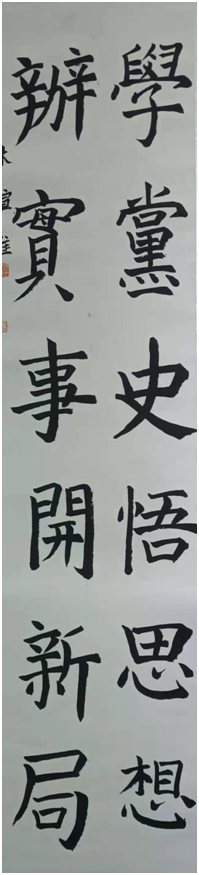 學黨史悟思想
辦實事開新局